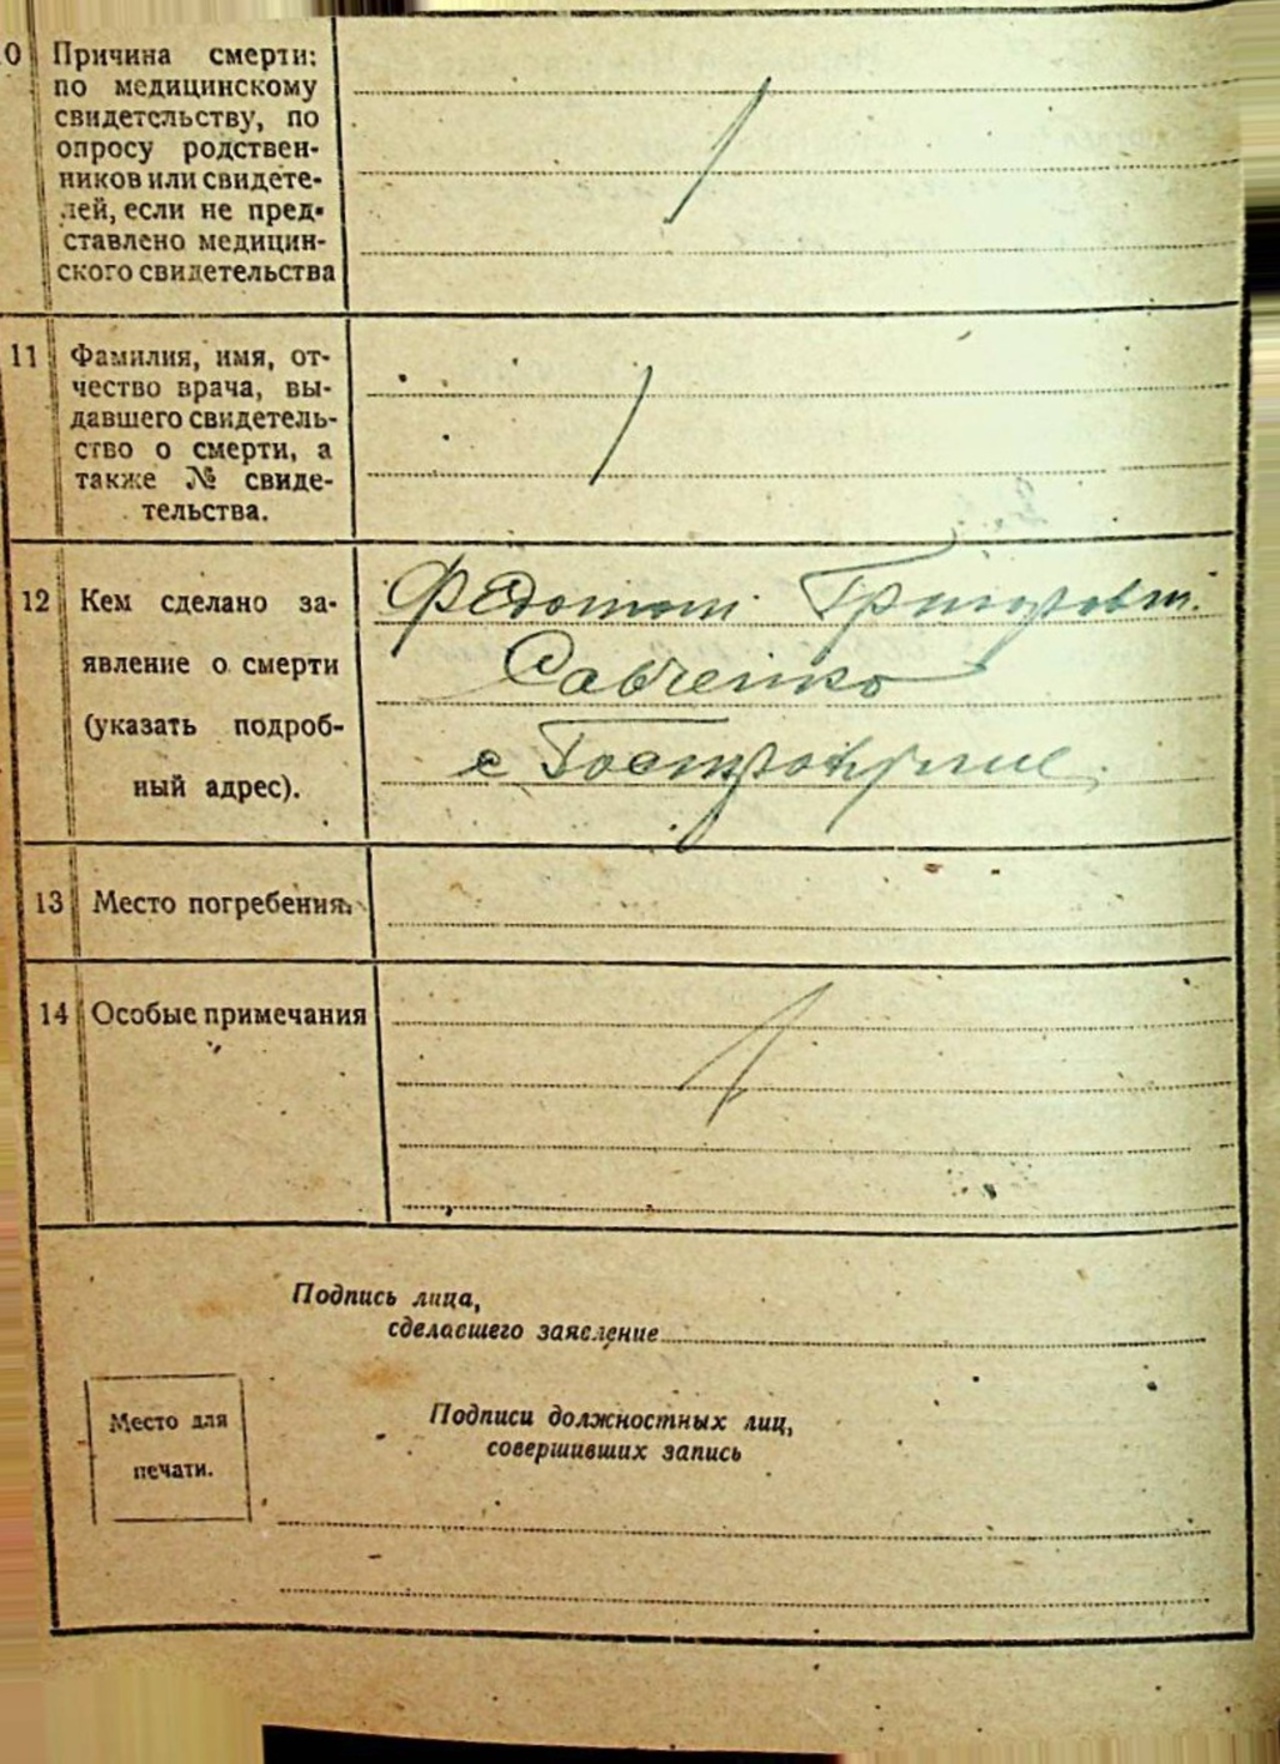 0 Причина смерти:
по медицинскому
свидетельству, по
опросу родствен-
ников или свидете-
лей, если не пред-
ставлено медицин-
ского свидетельства
11 Фамилия, имя, от-
чество врача, вы-
давшего свидетель-
ство о смерти, а
также № свиде-
тельства.
12 Кем сделано за-
явление о смерти
(указать подроб-
ный адрес).
Савченко
с
13 Место погребения.
14 Особые примечания
Подпись лица,
сделавшего заявление
Место для
печати.
Подписи должностных лиц,
совершивших запись